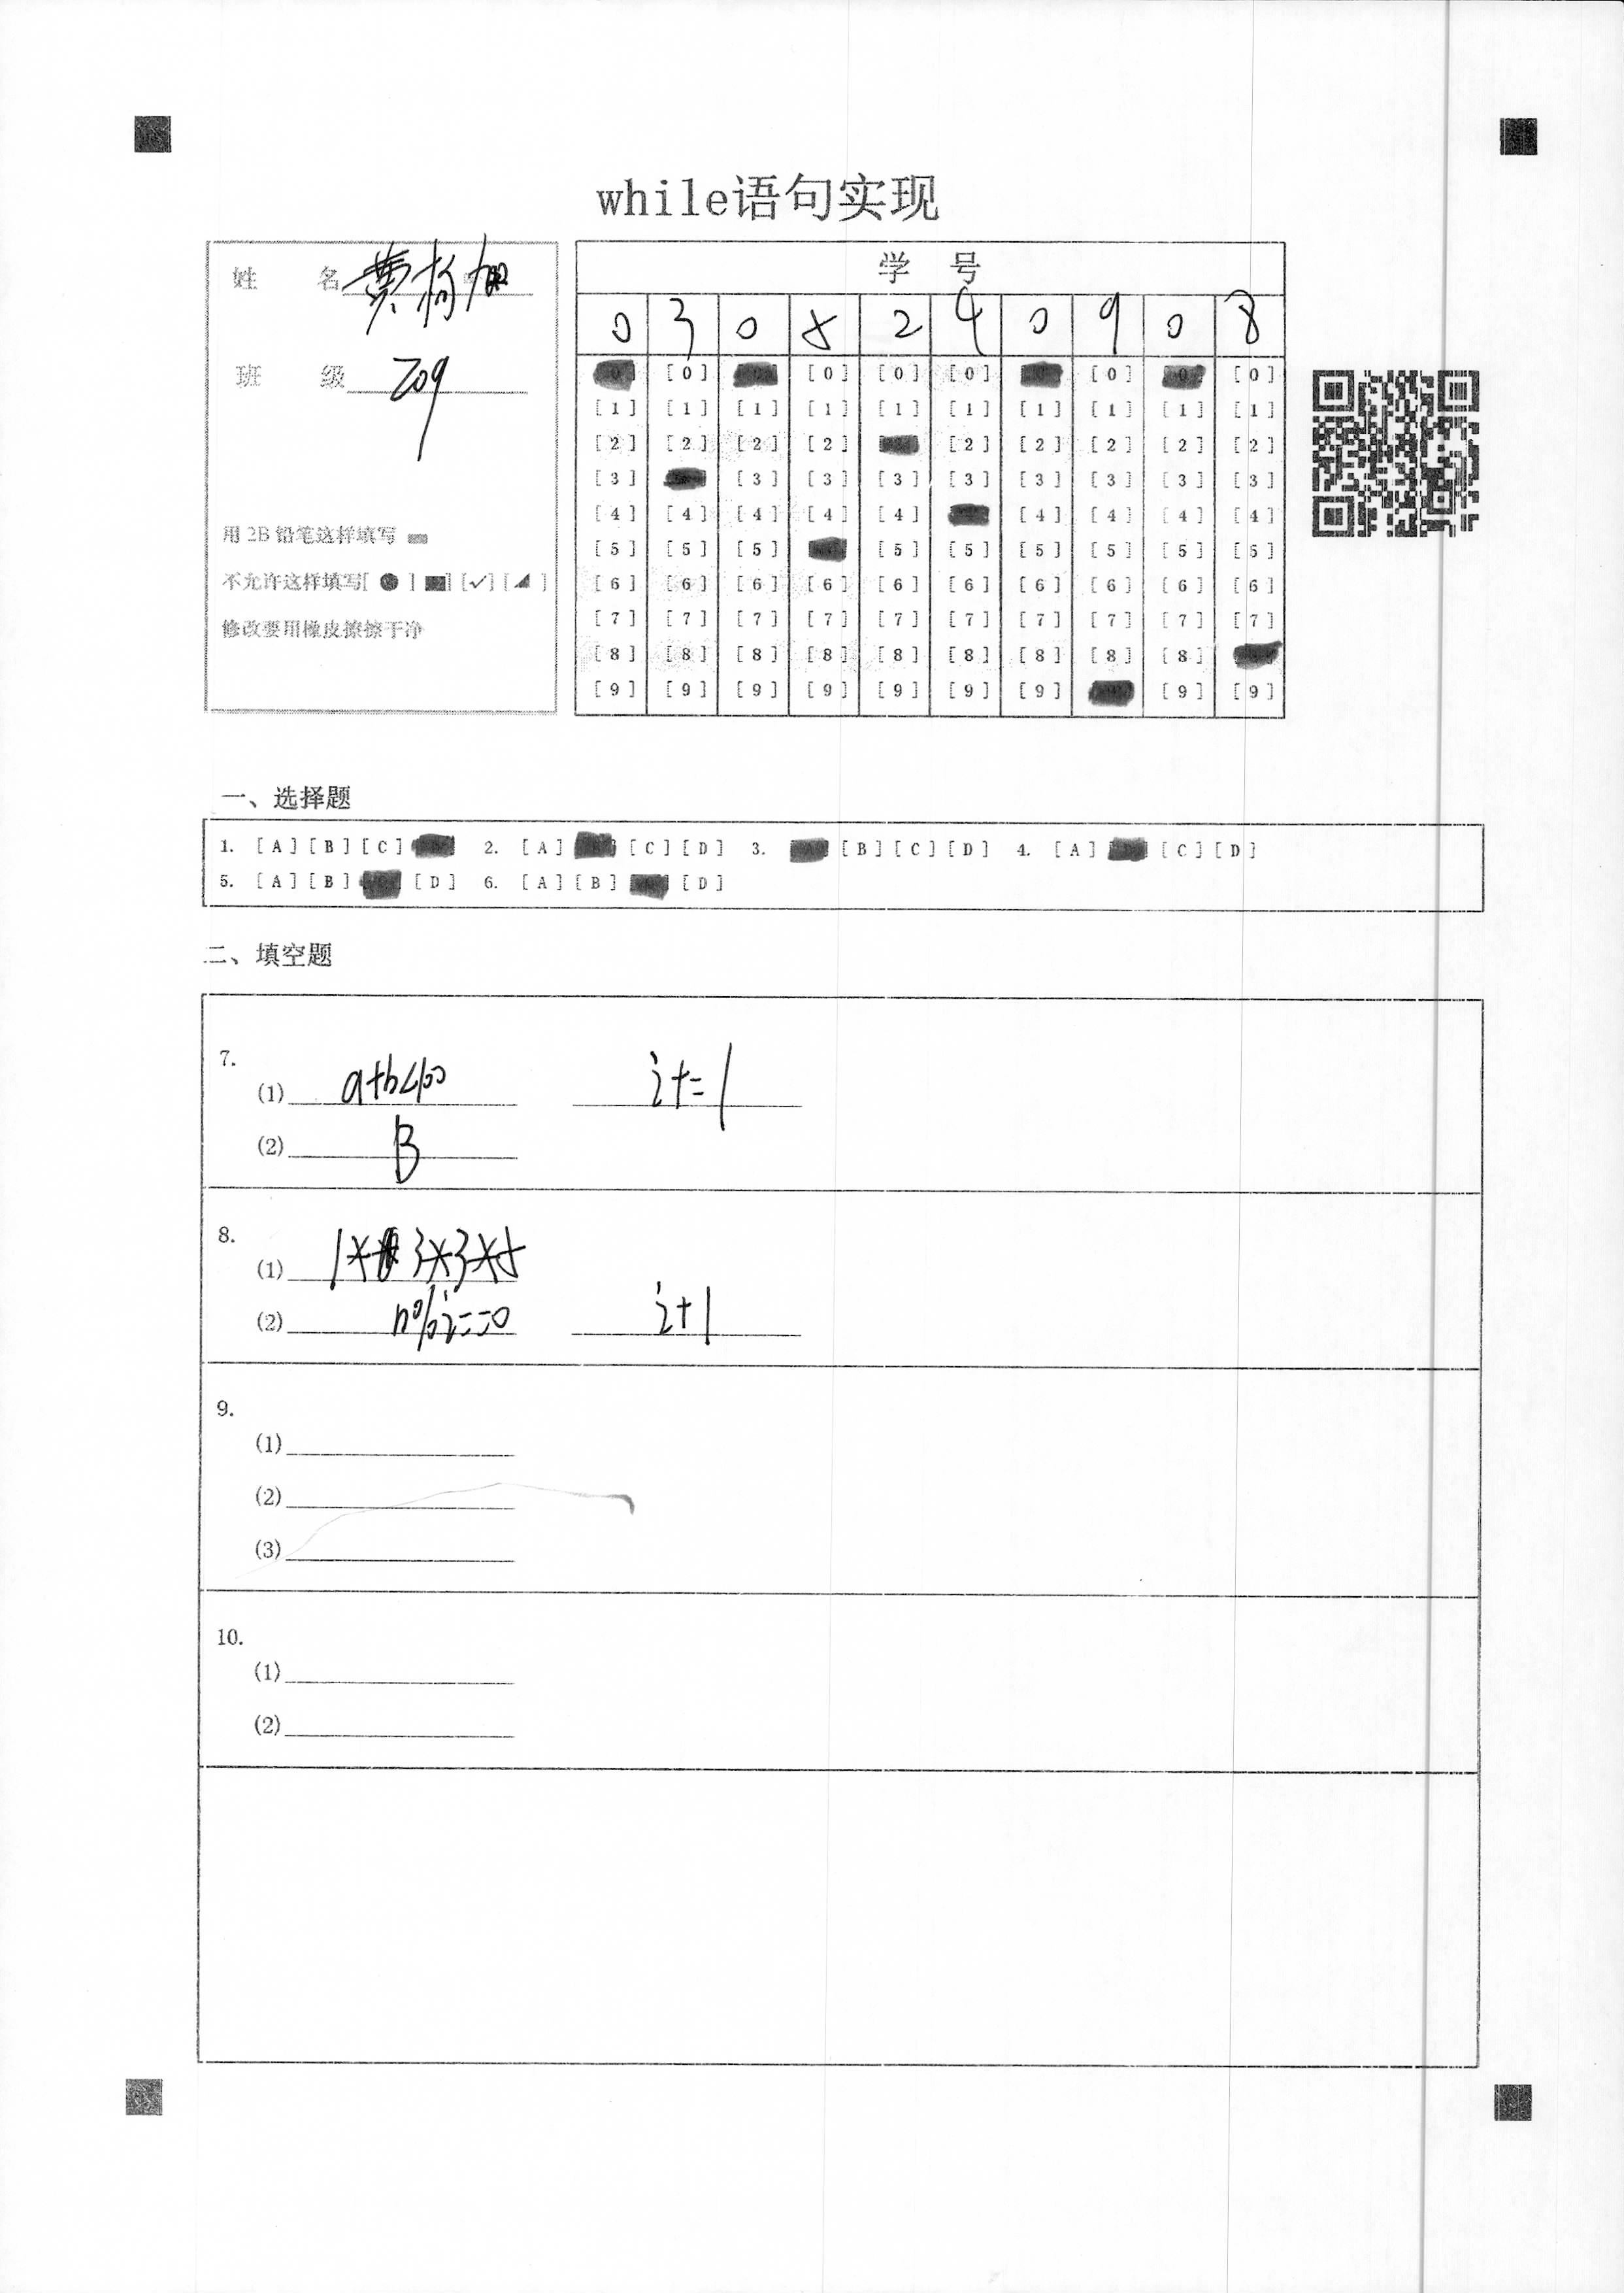 while语句实现
姓 名 黄杨旭
班 级 209
用 2B 铅笔这样填写
不允许这样填写[ ● ] [■] [✓] [◢ ]
修改要用橡皮擦擦干净
学 号
0 3 0 5 2 4 0 9 0 8
[0] [0] [0] [0] [0] [0]
[1] [1] [1] [1] [1] [1] [1] [1] [1] [1]
[2] [2] [2] [2] [2] [2] [2] [2] [2]
[3] [3] [3] [3] [3] [3] [3] [3] [3]
[4] [4] [4] [4] [4] [4] [4] [4] [4]
[5] [5] [5] [5] [5] [5] [5] [5] [5]
[6] [6] [6] [6] [6] [6] [6] [6] [6] [6]
[7] [7] [7] [7] [7] [7] [7] [7] [7] [7]
[8] [8] [8] [8] [8] [8] [8] [8] [8]
[9] [9] [9] [9] [9] [9] [9] [9] [9]
一、选择题
1. [A] [B] [C] 2. [A] [C] [D] 3. [B] [C] [D] 4. [A] [C] [D]
5. [A] [B] [D] 6. [A] [B] [D]
二、填空题
7.
(1) a+b<100 i+=1
(2) B
8.
(1) 1* 3*3*5
(2) n%i==0 i+1
9.
(1)
(2)
(3)
10.
(1)
(2)